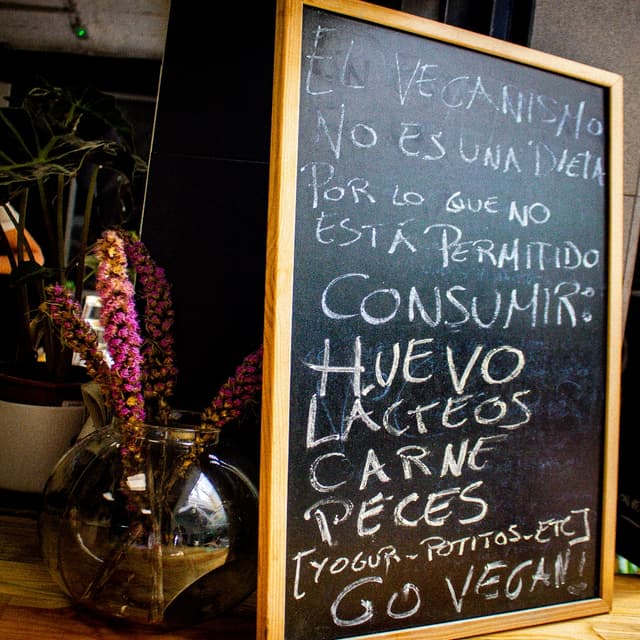 EL VEGANISMO
NO ES UNA DIETA
POR LO QUE NO
ESTÁ PERMITIDO
CONSUMIR:
HUEVO
LÁCTEOS
CARNE
PECES
[YOGUR-POTITOS-ETC]
GO VEGAN!